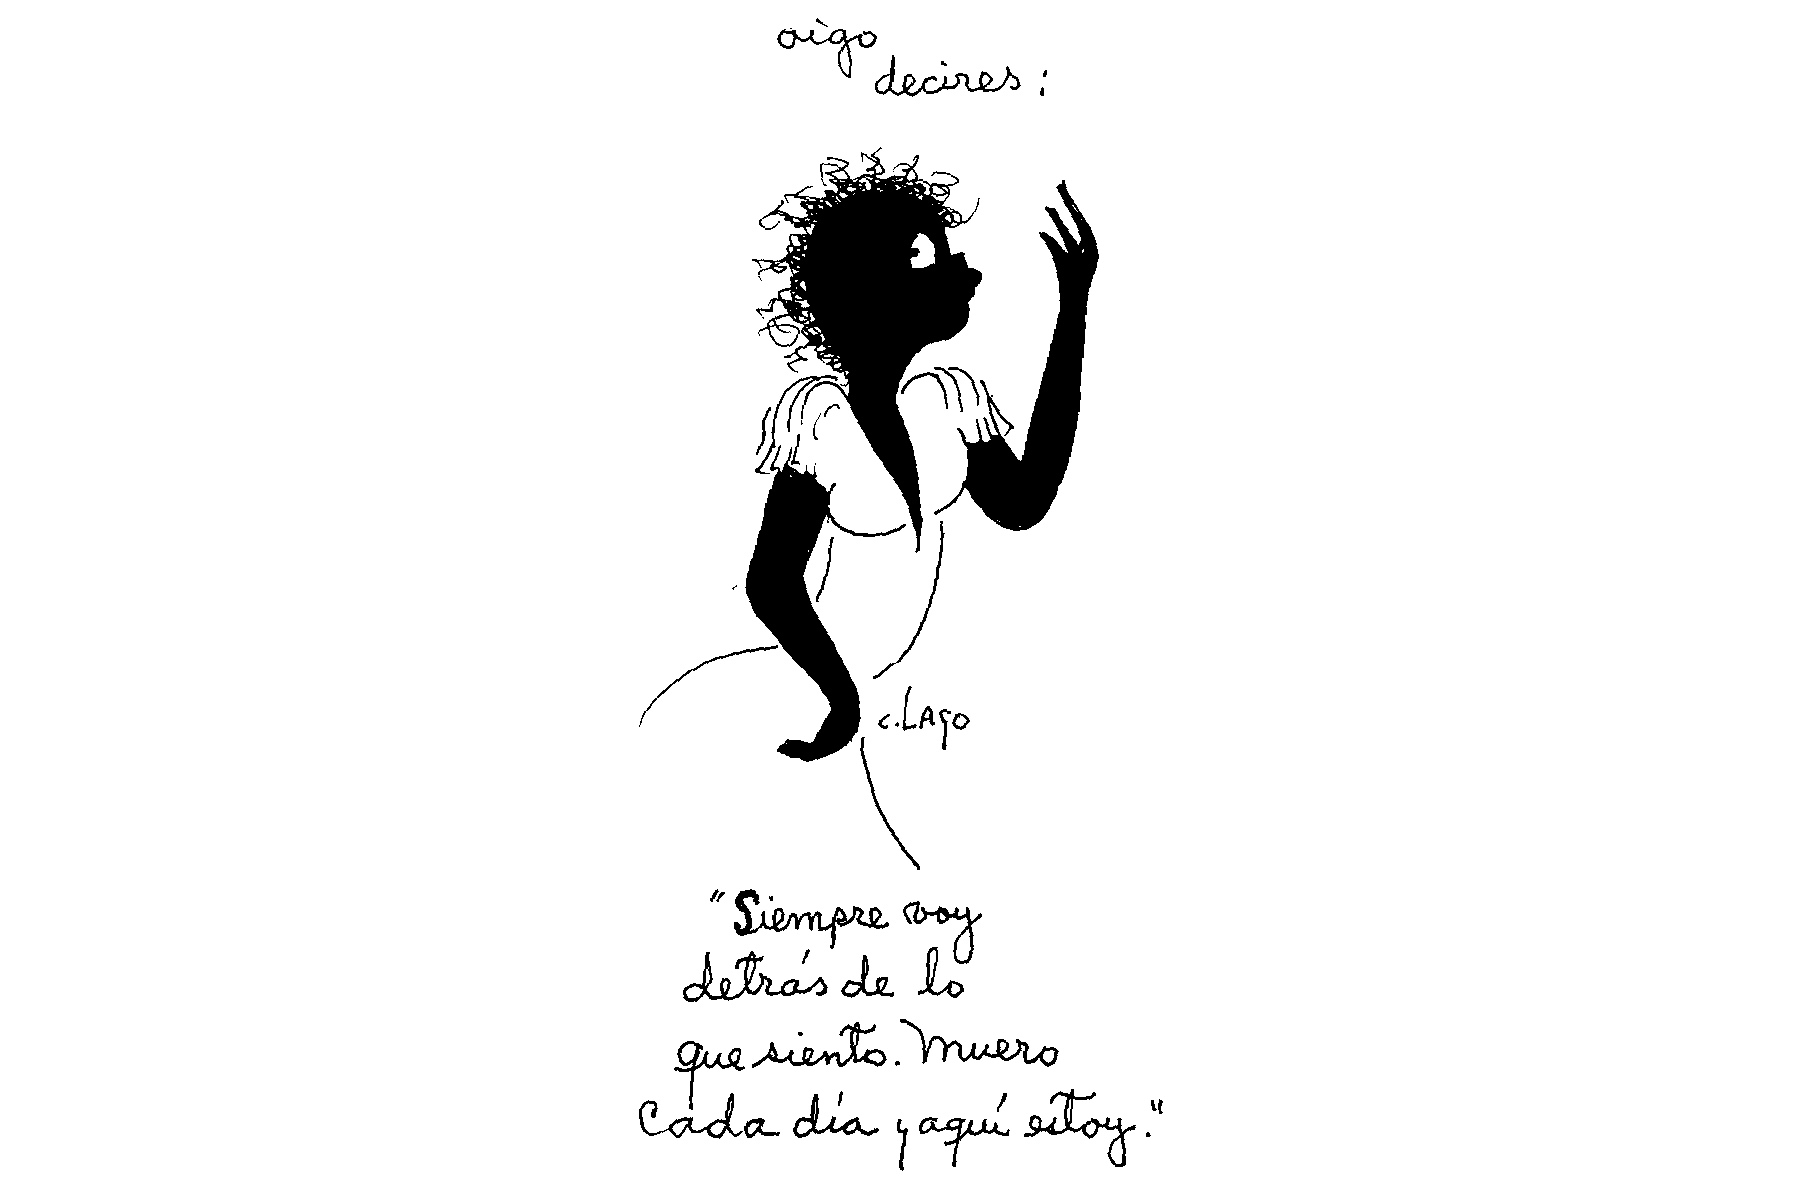 oigo
decires:
c. LAgo
"Siempre voy
detrás de lo
que siento. Muero
Cada día y aquí estoy."